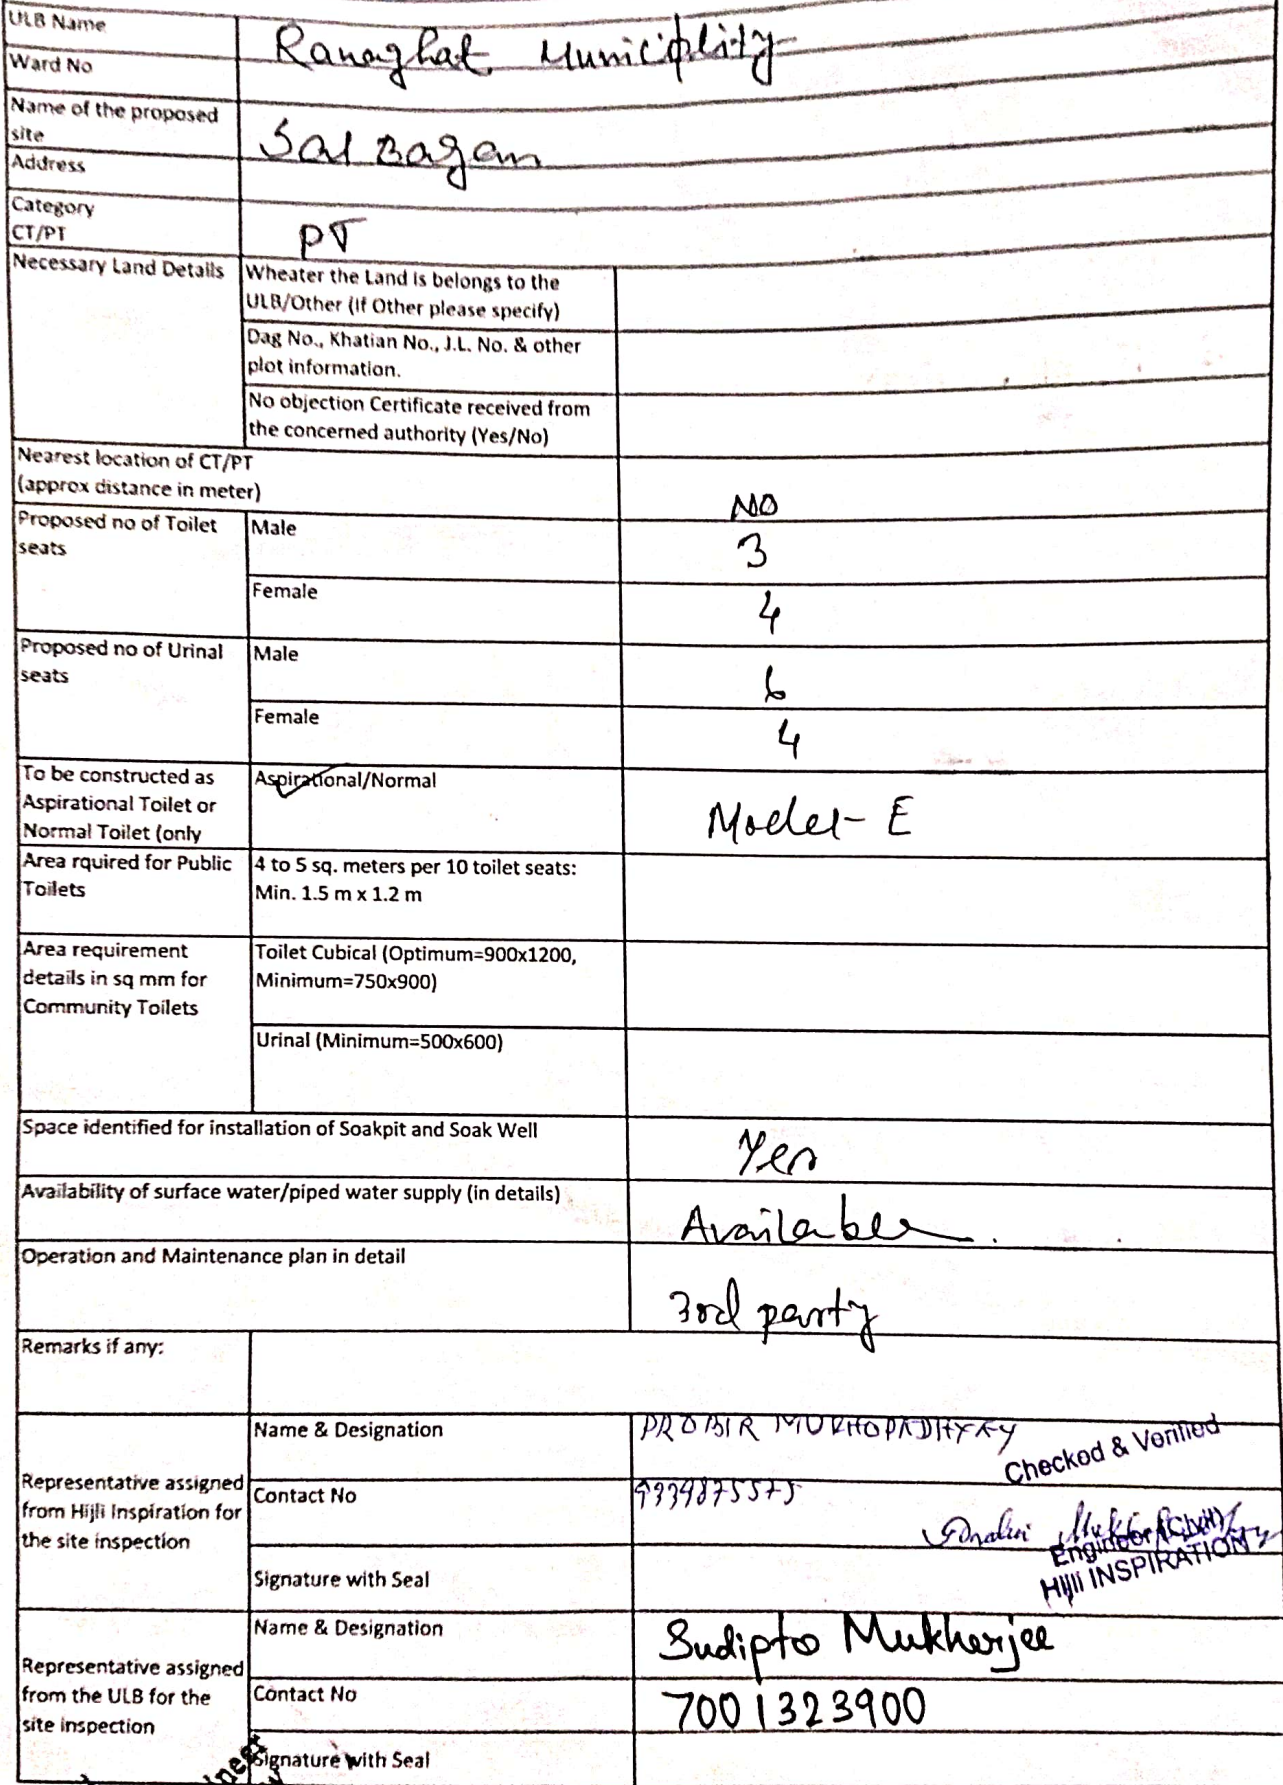 ULB Name
Ranaghat Municiplity
Ward No
Name of the proposed
site
Sal Bagan
Address
Category
CT/PT
PT
Necessary Land Details
Wheater the Land is belongs to the
ULB/Other (If Other please specify)
Dag No., Khatian No., J.L. No. & other
plot information.
No objection Certificate received from
the concerned authority (Yes/No)
Nearest location of CT/PT
(approx distance in meter)
NO
Proposed no of Toilet
seats
Male
3
Female
4
Proposed no of Urinal
seats
Male
6
Female
4
To be constructed as
Aspirational Toilet or
Normal Toilet (only
Aspirational/Normal
Model- E
Area rquired for Public
Toilets
4 to 5 sq. meters per 10 toilet seats:
Min. 1.5 m x 1.2 m
Area requirement
details in sq mm for
Community Toilets
Toilet Cubical (Optimum=900x1200,
Minimum=750x900)
Urinal (Minimum=500x600)
Space identified for installation of Soakpit and Soak Well
Yes
Availability of surface water/piped water supply (in details)
Availabe
Operation and Maintenance plan in detail
3rd party
Remarks if any:
Representative assigned
from Hijli Inspiration for
the site inspection
Name & Designation
PROBIR MUKHOPADHYAY
Checked & Verified
Contact No
9339875575
Engineer (Civil)
Hijli INSPIRATION
Signature with Seal
Representative assigned
from the ULB for the
site inspection
Name & Designation
Sudipto Mukherjee
Contact No
7001323900
Signature with Seal